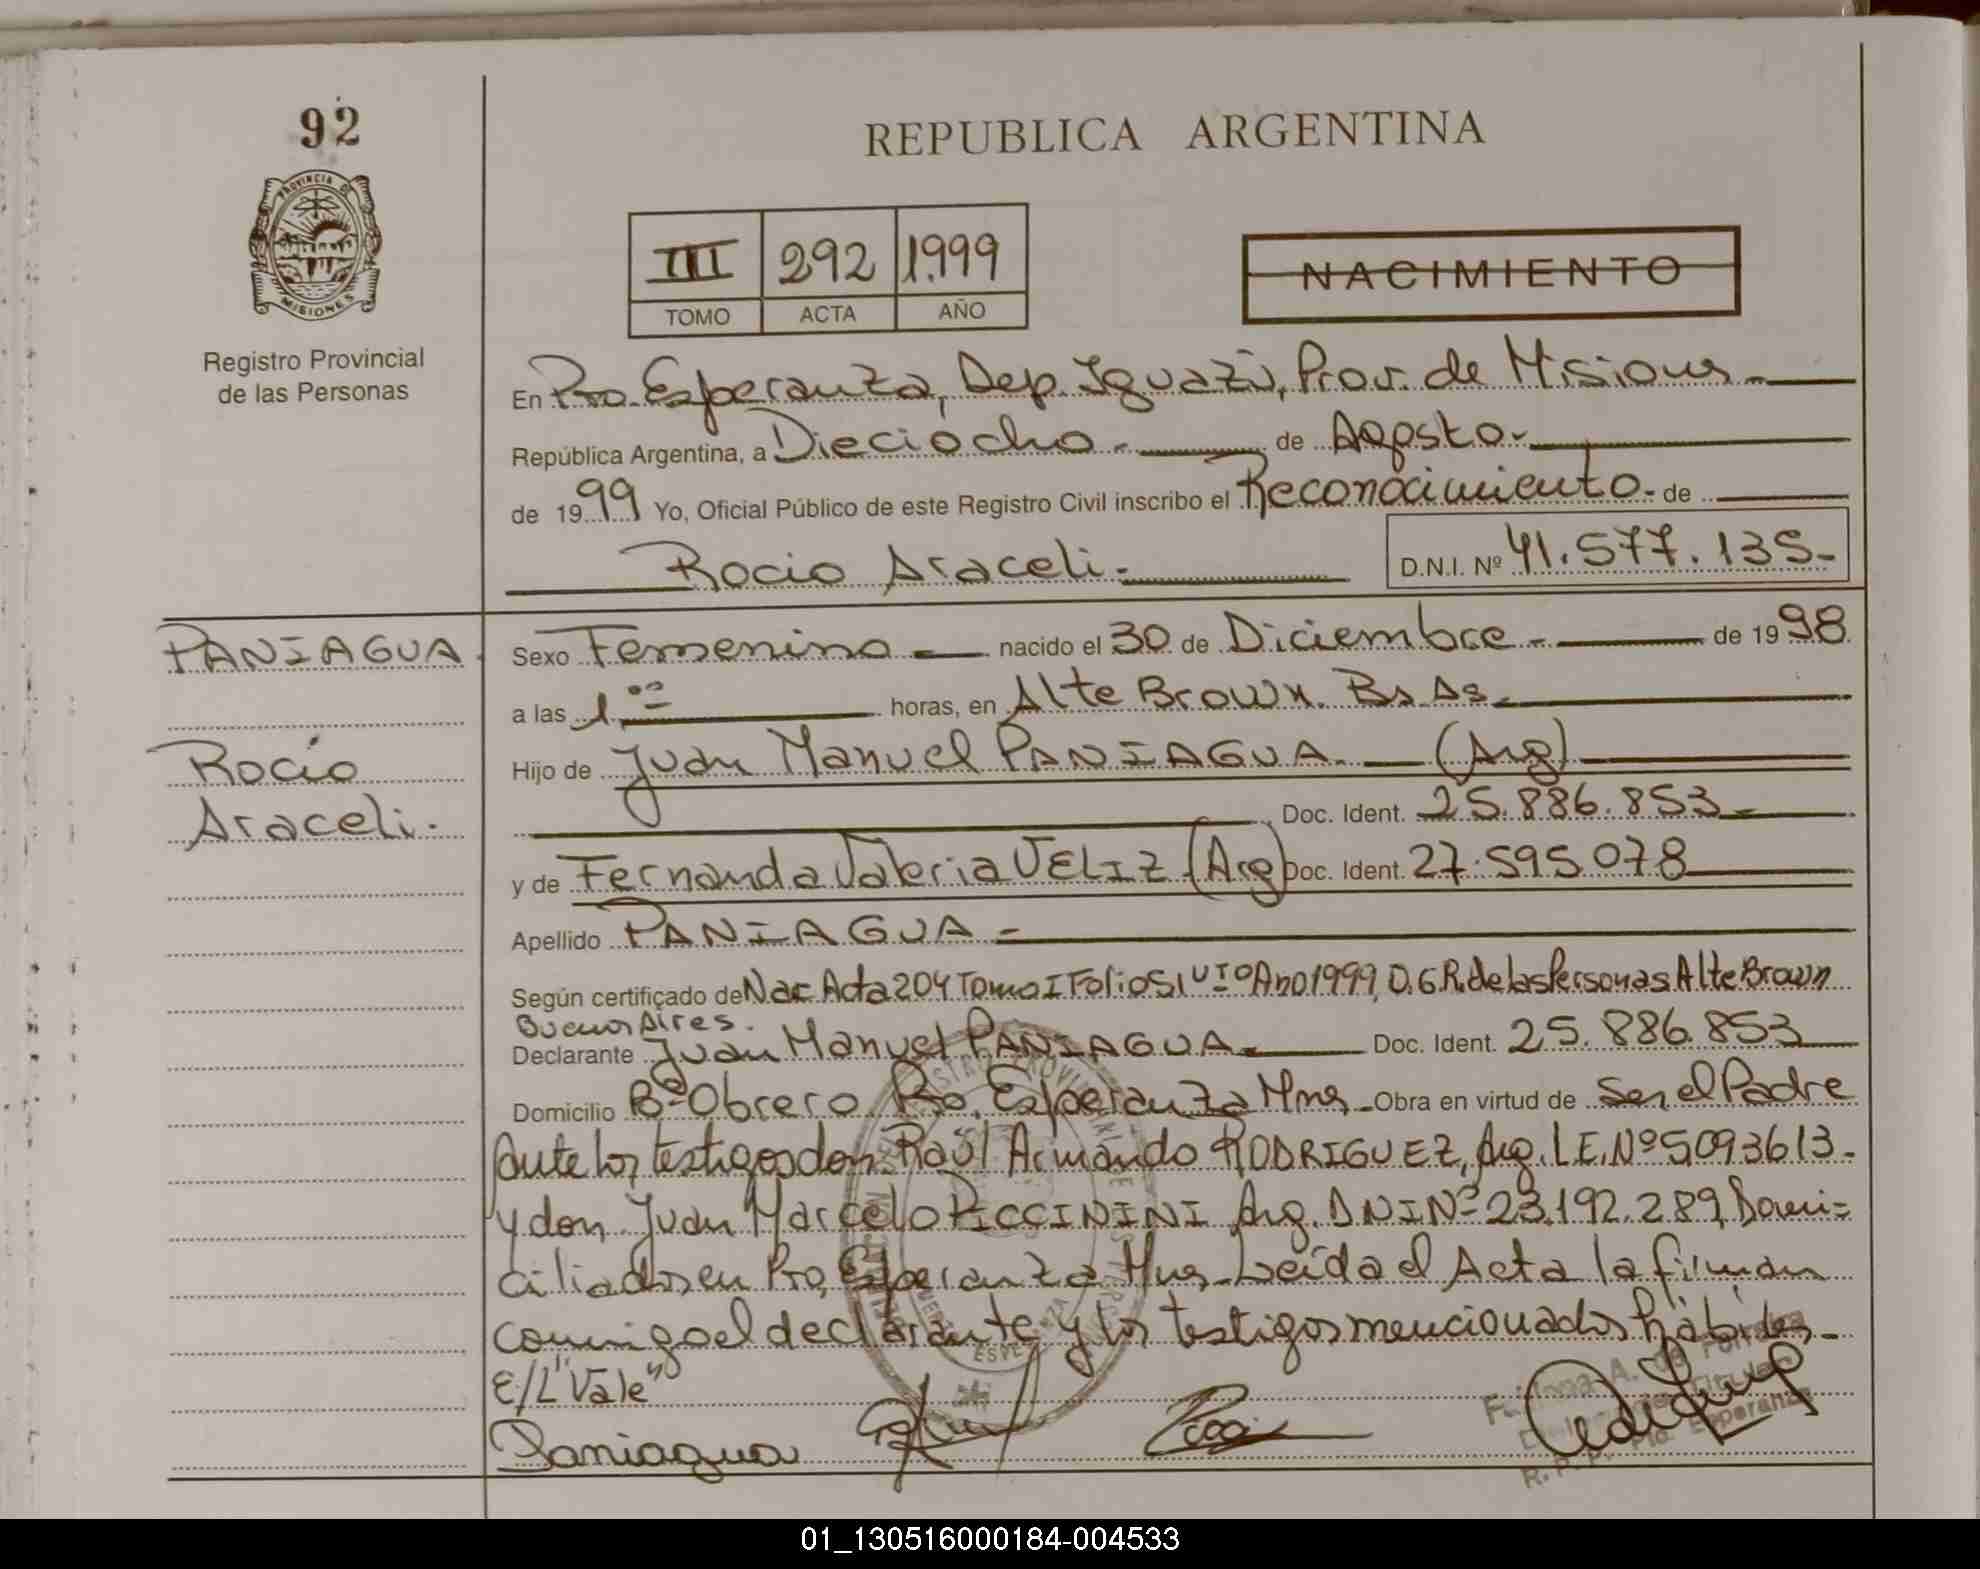 92
PROVINCIA DE
MISIONES
Registro Provincial
de las Personas
REPUBLICA ARGENTINA
III 292 1.999
TOMO ACTA AÑO
NACIMIENTO
En Pto. Esperanza, Dep. Iguazú, Prov. de Misiones
República Argentina, a Dieciocho.- de Agosto-
de 1999 Yo, Oficial Público de este Registro Civil inscribo el Reconocimiento- de
Rocio Araceli.-
D.N.I. Nº 41.577.135-
PANIAGUA
Rocio
Araceli.
Sexo Femenino - nacido el 30 de Diciembre - de 1998.
a las 1,00 horas, en Alte Brown. Bs As.
Hijo de Juan Manuel PANIAGUA. (Arg)
Doc. Ident. 25.886.853-
y de Fernanda Valeria VELIZ (Arg) Doc. Ident. 27.595.078
Apellido PANIAGUA -
Según certificado de Nac Acta 204 Tomo I Folio 51 Vto Año 1999, D.G.R. de las Personas Alte Brown
Buenos Aires.
Declarante Juan Manuel PANIAGUA.- Doc. Ident. 25.886.853
Domicilio Bº Obrero. Pto. Esperanza Mnes- Obra en virtud de Ser el Padre
ante los testigos don: Raúl Armando RODRIGUEZ, Arg. L.E. Nº 5093613-
y don Juan Marcelo PICCININI Arg. DNI Nº 23.192.289, Domi=
ciliados en Pto, Esperanza Mnes- Leída el Acta la firman
conmigo el declarante y los testigos mencionados hábiles-
E/L "Vale"
Paniagua
R. P. P. Pto. Esperanza
01_130516000184-004533